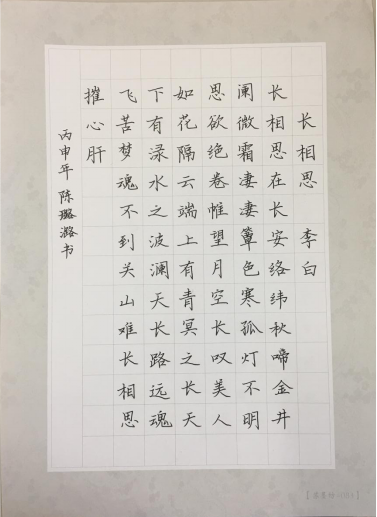 长相思 李白
长相思在长安络纬秋啼金井
阑微霜凄凄簟色寒孤灯不明
思欲绝卷帷望月空长叹美人
如花隔云端上有青冥之长天
下有渌水之波澜天长路远魂
飞苦梦魂不到关山难长相思
摧心肝
丙申年 陈璐潞书